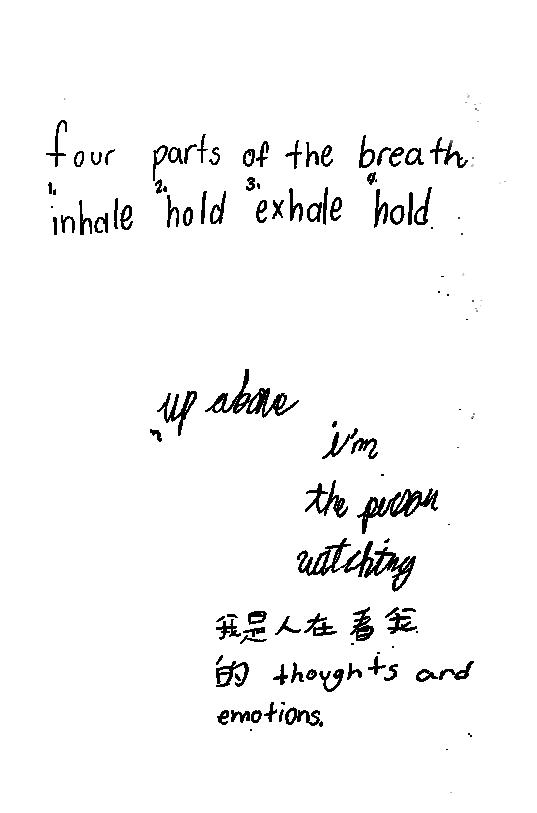 four parts of the breath:
1. inhale 2. hold 3. exhale 4. hold.
up above
i'm
the person
watching
我是人在看我
的 thoughts and
emotions.